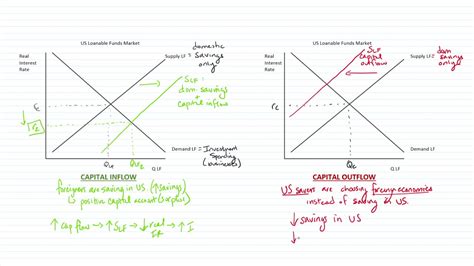 US Loanable Funds Market
Real
Interest
Rate
domestic
Supply LF = Savings
only
SLF =
dom. savings
+
capital inflow
r2
Demand LF = Investment
Spending
(businesses)
QLF
QLF2
Q LF
CAPITAL INFLOW
foreigners are saving in US. (↑Savings)
↳ positive capital account (surplus)
↑ cap flow → ↑ SLF → ↓ real IR → ↑ I
US Loanable Funds Market
Real
Interest
Rate
SLF
capital
outflow
Supply LF = dom
savings
only
rE
QE
Demand LF
Q LF
CAPITAL OUTFLOW
US savers are choosing foreign economies
instead of saving in US.
↓ savings in US
↓